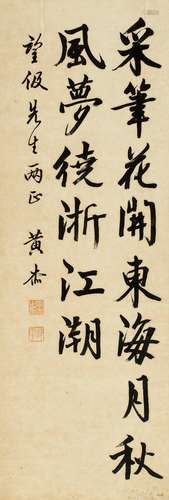 采筆花開東海月秋
風夢繞浙江潮
望俶先生兩正 黃杰